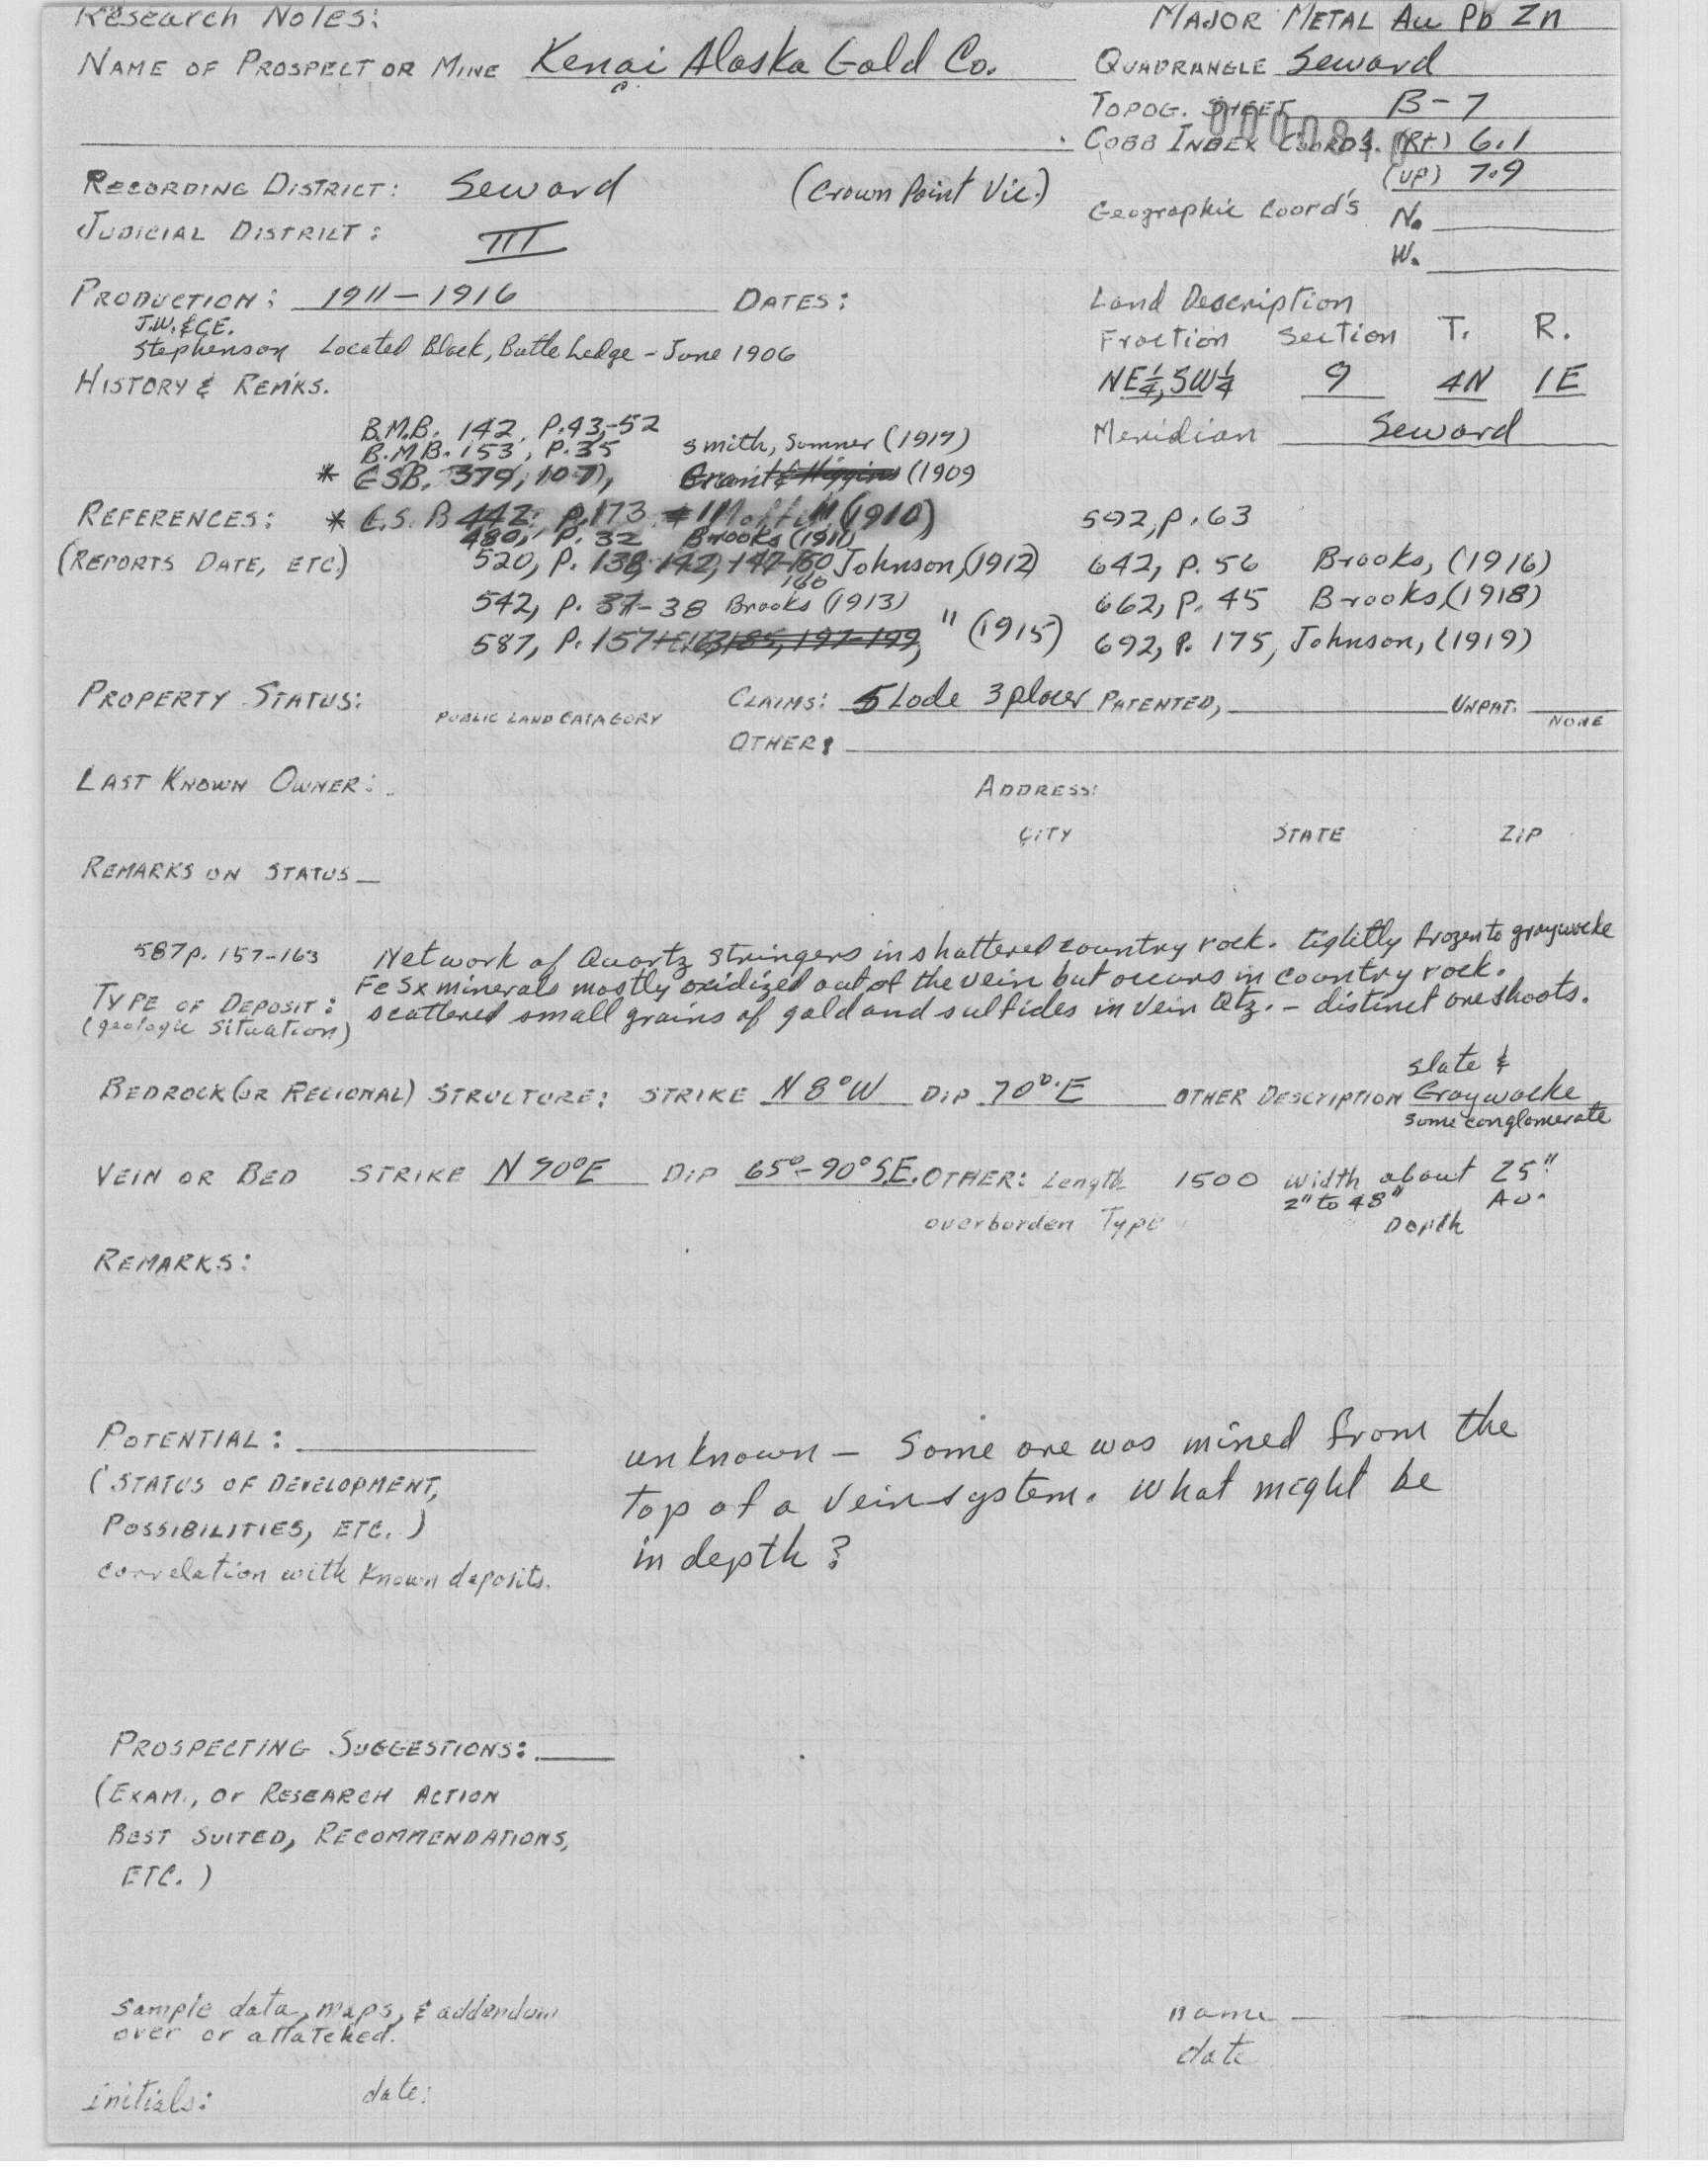 Research Notes:
MAJOR METAL Au Pb Zn
NAME OF PROSPECT OR MINE Kenai Alaska Gold Co.
QUADRANGLE Seward
TOPOG. SHEET B-7
COBB INDEX COORDS. (Rt.) 6.1
(UP) 7.9
RECORDING DISTRICT: Seward (Crown Point Vic.)
Geographic Coord's N.
W.
JUDICIAL DISTRICT: III
PRODUCTION: 1911-1916 DATES:
Land Description
J.W. & C.E.
Stephenson Located Black, Butte Ledge - June 1906
Fraction Section T. R.
HISTORY & REMKS.
NE¼, SW¼ 9 4N 1E
B.M.B. 142, P.43-52
B.M.B. 153, P.35 Smith, Sumner (1917)
Meridian Seward
* G.S.B. 379, 107, Grant & Higgins (1909
REFERENCES: * G.S. B 442: p.173 Moffit (1910)
592, p.63
480, P. 32 Brooks (1911)
(REPORTS DATE, ETC.) 520, P. 138, 142, 147-150 Johnson, (1912)
160
642, P. 56 Brooks, (1916)
542, p. 37-38 Brooks (1913)
662, P. 45 Brooks, (1918)
587, P. 157 197-199, " (1915)
692, P. 175, Johnson, (1919)
PROPERTY STATUS: PUBLIC LAND CATAGORY CLAIMS: 5 Lode 3 placer PATENTED, UNPAT. NONE
OTHER:
LAST KNOWN OWNER: ADDRESS:
CITY STATE ZIP
REMARKS ON STATUS
587 p. 157-163 Network of Quartz stringers in shattered country rock. tightly frozen to graywacke
FeSx minerals mostly oxidized out of the vein but occurs in country rock.
TYPE OF DEPOSIT: scattered small grains of gold and sulfides in vein Qtz. - distinct ore shoots.
(geologic situation)
slate &
BEDROCK (OR REGIONAL) STRUCTURE: STRIKE N 8° W DIP 70° E OTHER DESCRIPTION Graywacke
some conglomerate
VEIN OR BED STRIKE N 70° E DIP 65°-90° S.E. OTHER: Length 1500 width about 25"
2" to 48" Av.
overburden Type Depth
REMARKS:
POTENTIAL: unknown - Some ore was mined from the
(STATUS OF DEVELOPMENT, top of a vein system. What might be
POSSIBILITIES, ETC.) in depth?
correlation with known deposits.
PROSPECTING SUGGESTIONS:
(EXAM., or RESEARCH ACTION
BEST SUITED, RECOMMENDATIONS,
ETC.)
Sample data, maps, & addendum
over or attatched.
name
date
initials: date: